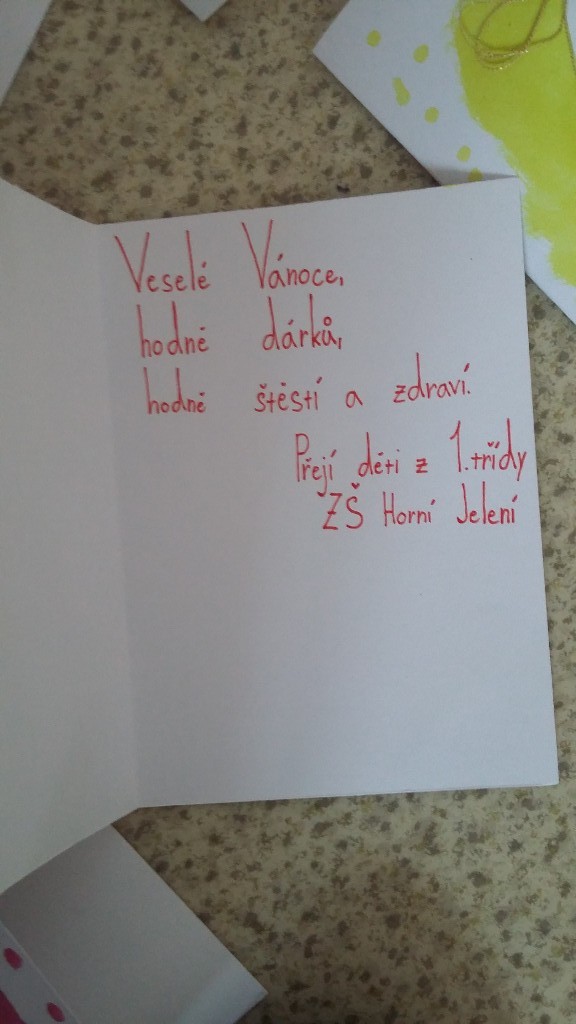 Veselé Vánoce,
hodně dárků,
hodně štěstí a zdraví.
Přejí děti z 1. třídy
ZŠ Horní Jelení